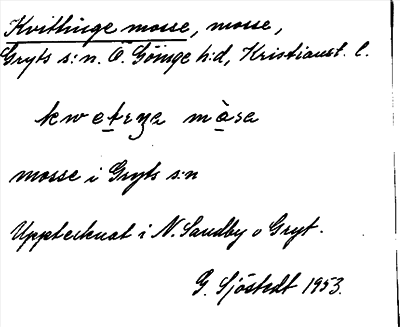 Kvithinge mosse, mosse,
Gryts s:n. Ö. Göinge h:d, Kristianst. l.
mosse i Gryts s:n
Upptecknat i N. Sandby o Gryt.
G. Sjöstedt 1953.